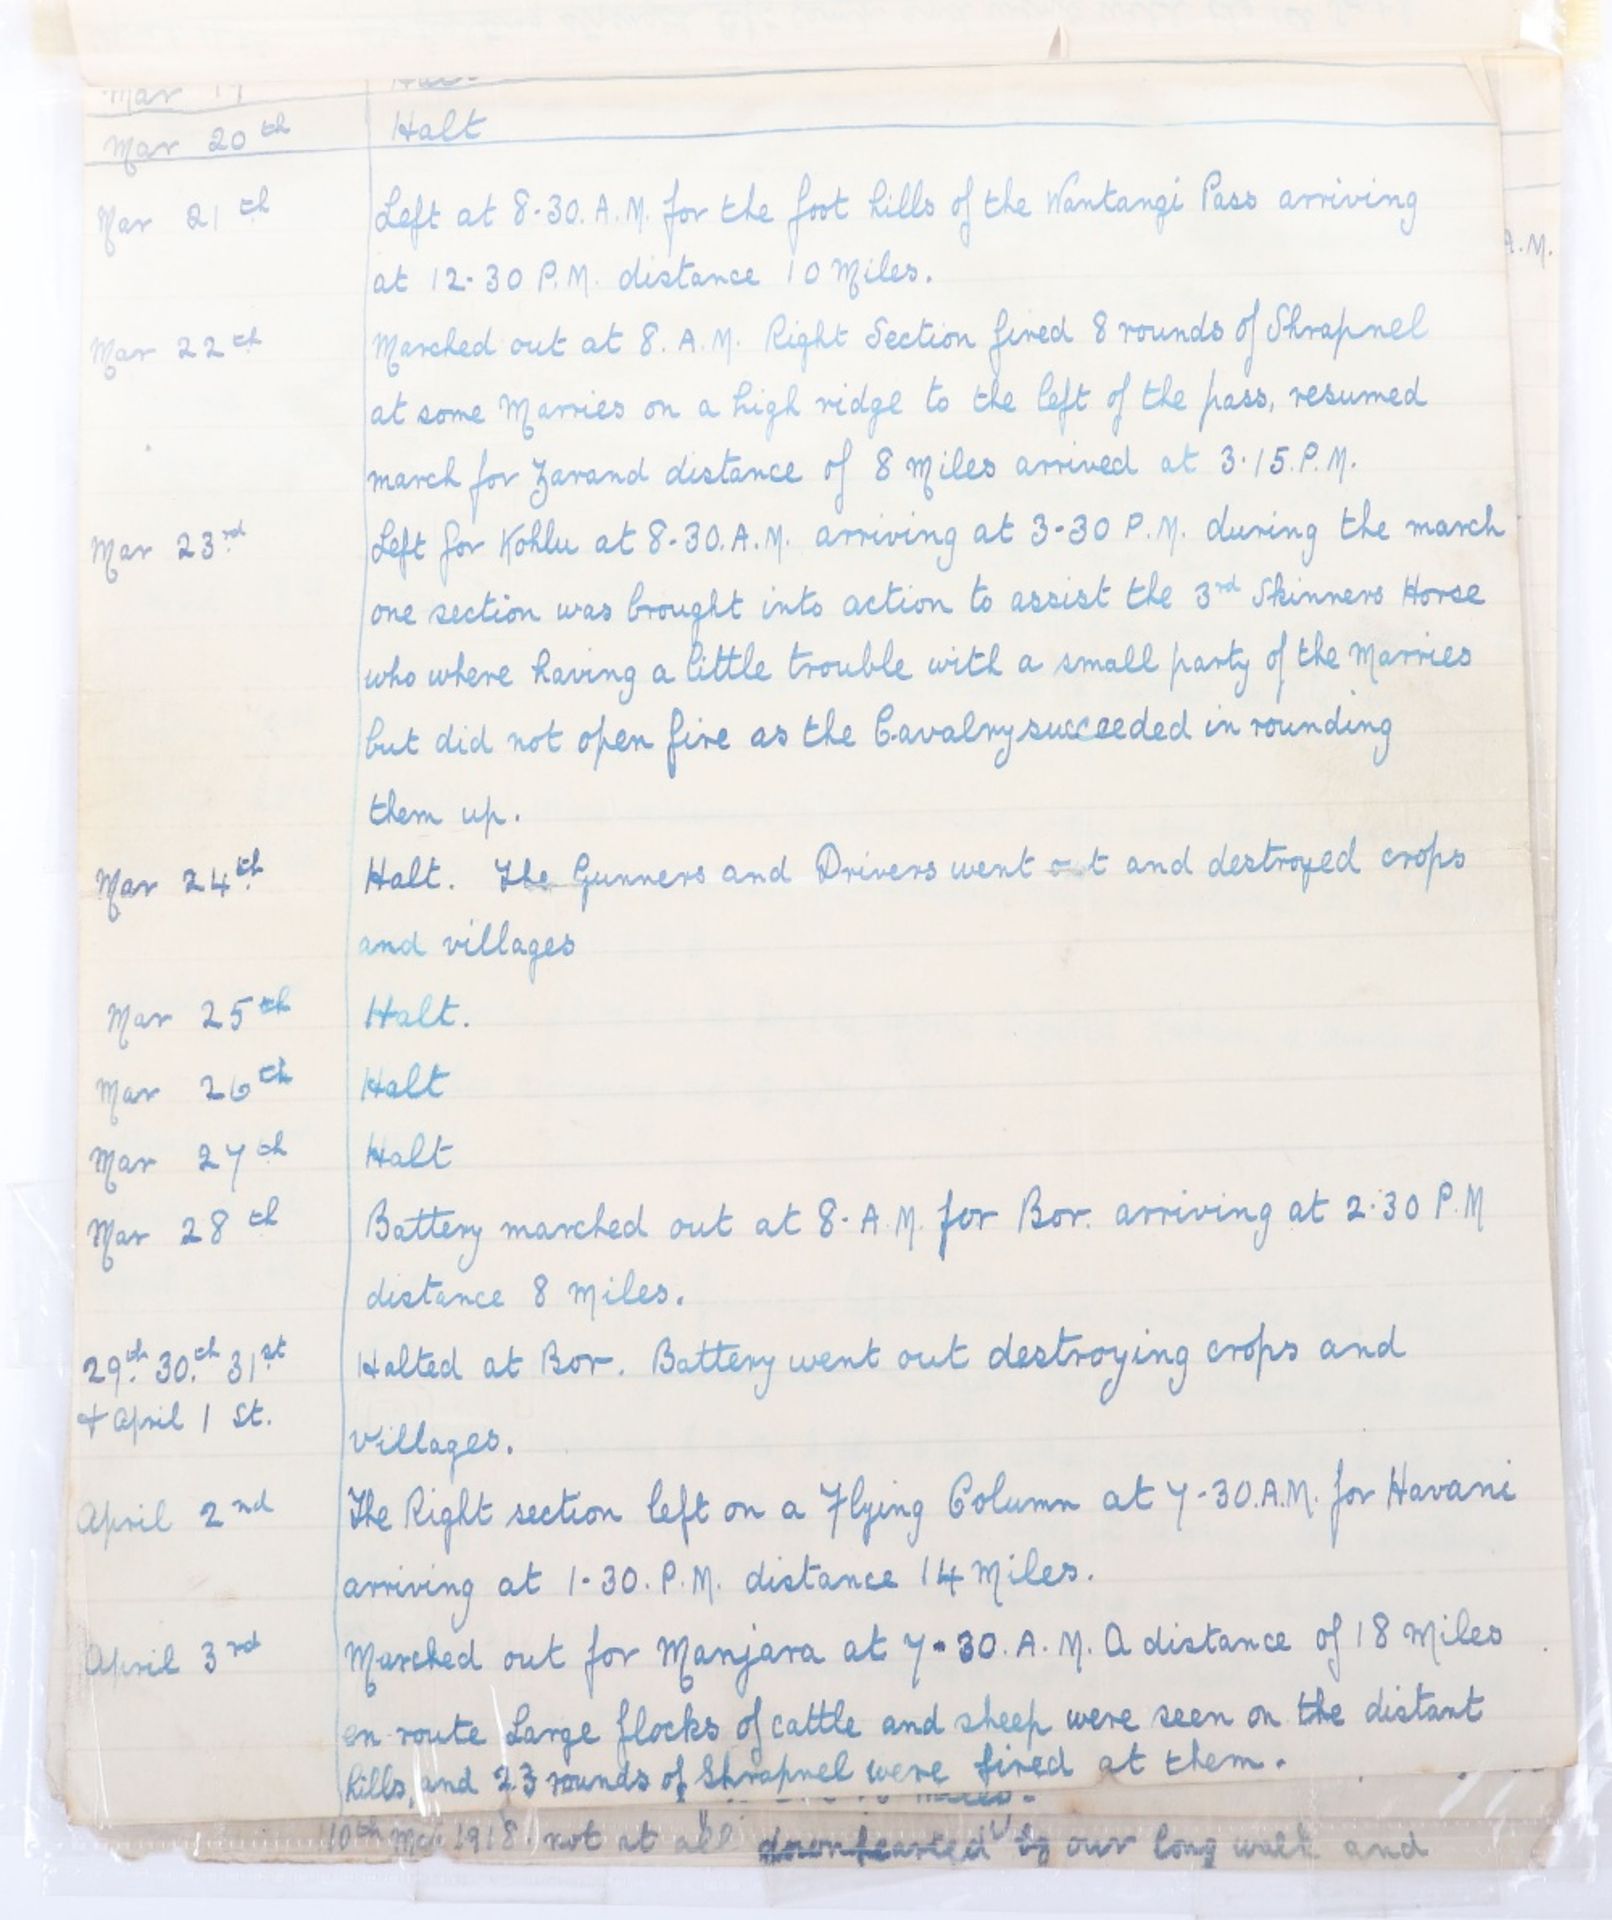 Mar 20th Halt
Mar 21th Left at 8-30. A.M. for the foot hills of the Wantangi Pass arriving
A.M.
at 12-30 P.M. distance 10 Miles.
Mar 22th Marched out at 8. A.M. Right Section fired 8 rounds of Shrapnel
at some Marries on a high ridge to the left of the pass, resumed
march for Zarand distance of 8 Miles arrived at 3.15. P.M.
Mar 23rd Left for Kohlu at 8-30. A.M. arriving at 3-30 P.M. during the march
one section was brought into action to assist the 3rd Skinners Horse
who where having a little trouble with a small party of the Marries
but did not open fire as the Cavalry succeeded in rounding
them up.
Mar 24th Halt. The Gunners and Drivers went out and destroyed crops
and villages
Mar 25th Halt.
Mar 26th Halt
Mar 27th Halt
Mar 28th Battery marched out at 8- A.M. for Bor. arriving at 2.30 P.M
distance 8 Miles.
29th. 30.th 31st Halted at Bor. Battery went out destroying crops and
& April 1 St.
villages.
April 2nd The Right section left on a Flying Column at 7-30. A.M. for Havani
arriving at 1-30. P.M. distance 14 Miles.
April 3rd Marched out for Manjara at 7-30. A.M. A distance of 18 Miles
en route Large flocks of cattle and sheep were seen on the distant
hills, and 23 rounds of Shrapnel were fired at them.
10th 1918 not at all downhearted by our long walk and